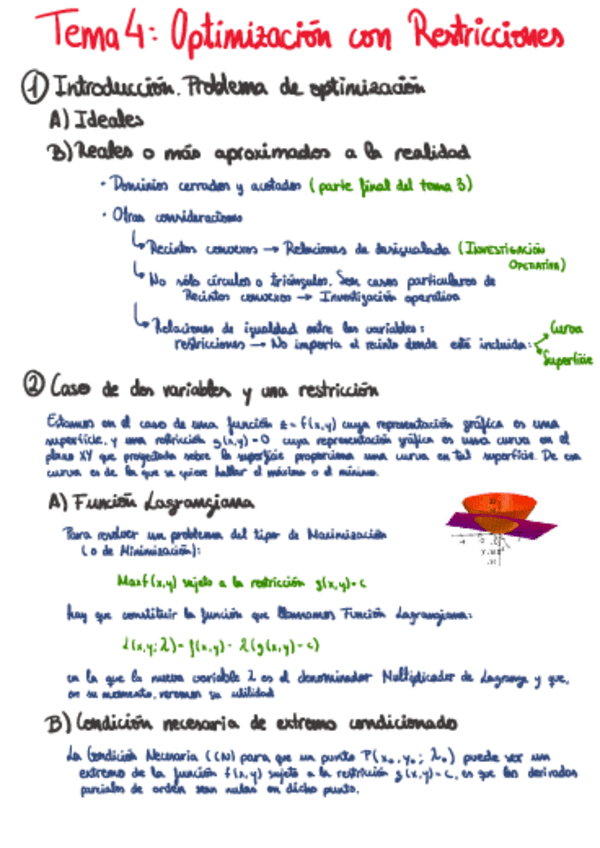 Tema 4: Optimización con Restricciones
① Introducción. Problema de optimización
A) Ideales
B) Reales o más aproximados a la realidad
· Dominios cerrados y acotados (parte final del tema 3)
· Otras consideraciones
↳ Recintos convexos → Relaciones de desigualdad (INVESTIGACIÓN
OPERATIVA)
↳ No sólo círculos o triángulos. Son casos particulares de
Recintos convexos → Investigación operativa
↳ Relaciones de igualdad entre las variables:
restricciones → No importa el recinto donde esté incluida:
Curva
Superficie
② Caso de dos variables y una restricción
Estamos en el caso de una función z = f(x,y) cuya representación gráfica es una
superficie, y una restricción g(x,y)=0 cuya representación gráfica es una curva en el
plano XY que proyectada sobre la superficie proporciona una curva en tal superficie. De esa
curva es de la que se quiere hallar el máximo o el mínimo.
A) Función Lagrangiana
Para resolver un problema del tipo de Maximización
(o de Minimización):
Max f(x,y) sujeto a la restricción g(x,y)=c
hay que constituir la función que llamamos Función Lagrangiana:
L(x,y;λ)= f(x,y)- λ(g(x,y)-c)
en la que la nueva variable λ es el denominador Multiplicador de Lagrange y que,
en su momento, veremos su utilidad
B) Condición necesaria de extremo condicionado
La Condición Necesaria (CN) para que un punto P(x₀,y₀; λ₀) puede ser un
extremo de la función f(x,y) sujeto a la restricción g(x,y)=c, es que las derivadas
parciales de orden sean nulas en dicho punto.